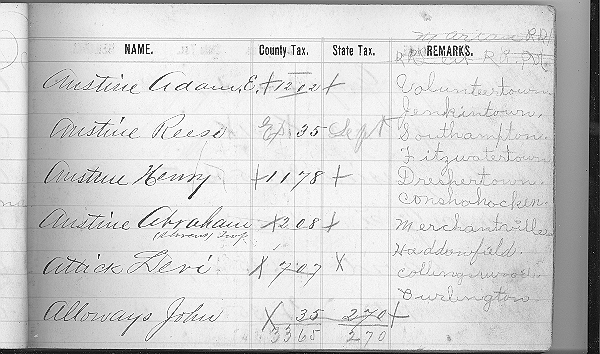 NAME. County Tax. State Tax. REMARKS.
Austine Adam. E. + 12 02 + Volunteertown
Jenkintown.
Austine Reese Ex. 35 Sept Southampton.
Fitzwatertown
Austine Henry + 11 78 + Dreshertown.
Conshohocken.
Austine Abraham X 2 08 + Merchantville
Haddonfield.
Attick Levi X 7 07 X Collingswood.
Burlington
Alloways John X 35 2 70 +
33 65 2 70